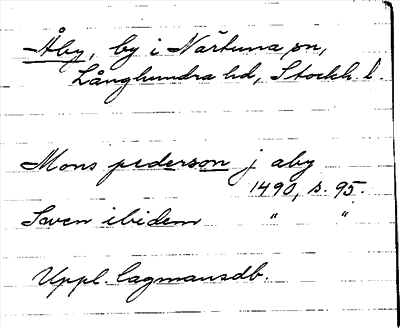 Åby, by i Närtuna sn,
Långhundra hd, Stockh. l.
Mons pederson j aby
1490, s. 95.
Sven ibidem " "
Uppl. lagmansdb.